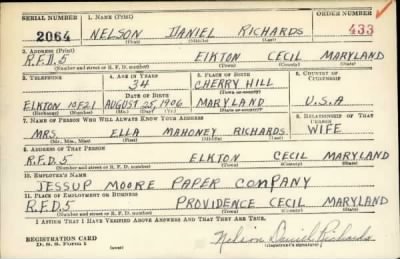 SERIAL NUMBER 1. NAME (Print) ORDER NUMBER
2064 NELSON DANIEL RICHARDS 433
(First) (Middle) (Last)
2. ADDRESS (Print)
R.F.D.5 ELKTON CECIL MARYLAND
(Number and street or R. F. D. number) (Town) (County) (State)
3. TELEPHONE 4. AGE IN YEARS 5. PLACE OF BIRTH 6. COUNTRY OF CITIZENSHIP
34 CHERRY HILL
DATE OF BIRTH (Town or county)
ELKTON 10F21 AUGUST 25, 1906 MARYLAND U.S.A
(Exchange) (Number) (Mo.) (Day) (Yr.) (State or country)
7. NAME OF PERSON WHO WILL ALWAYS KNOW YOUR ADDRESS 8. RELATIONSHIP OF THAT PERSON
MRS. ELLA MAHONEY RICHARDS WIFE
(Mr., Mrs., Miss) (First) (Middle) (Last)
9. ADDRESS OF THAT PERSON
R.F.D.5 ELKTON CECIL MARYLAND
(Number and street or R. F. D. number) (Town) (County) (State)
10. EMPLOYER'S NAME
JESSUP MOORE PAPER COMPANY
11. PLACE OF EMPLOYMENT OR BUSINESS
R.F.D.5 PROVIDENCE CECIL MARYLAND
(Number and street or R. F. D. number) (Town) (County) (State)
I AFFIRM THAT I HAVE VERIFIED ABOVE ANSWERS AND THAT THEY ARE TRUE.
REGISTRATION CARD
D. S. S. Form 1 (over) (Registrant's signature)
Nelson Daniel Richards